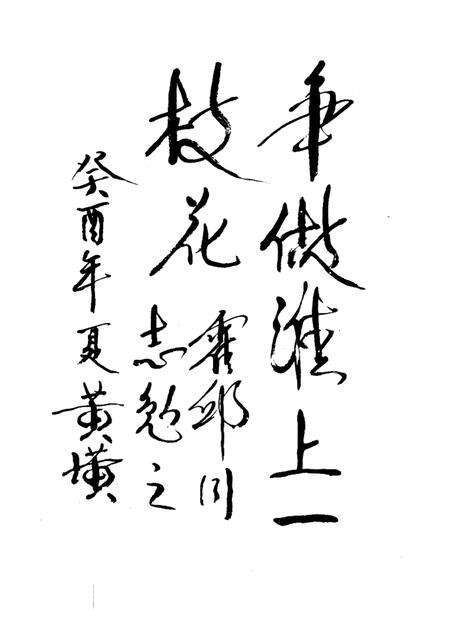 争做淮上一
枝花
霍邱同
志勉之
癸酉年夏黄璜